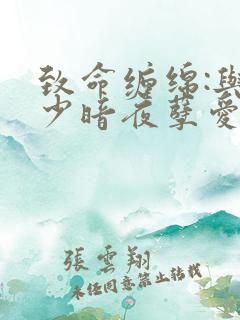 致命缠绵:與
少暗夜孽爱
張雲翔
未經同意禁止轉載